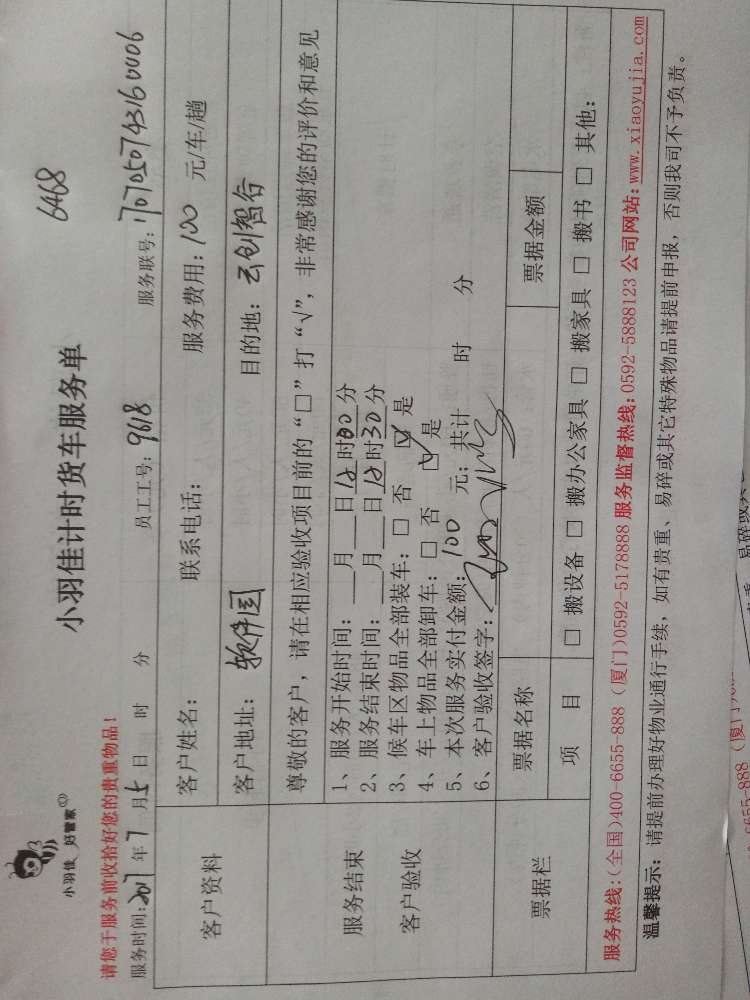 小羽佳 好管家
小羽佳计时货车服务单
6468
请您于服务前收拾好您的贵重物品！
服务时间：2017年7月5日 时 分 员工工号：9618 服务联号：170705074316 0006
客户资料
客户姓名： 联系电话： 服务费用：100 元/车/趟
客户地址：软件园 目的地：云创智谷
服务结束
客户验收
尊敬的客户，请在相应验收项目前的“□”打“√”，非常感谢您的评价和意见
1、服务开始时间：__月__日12时00分
2、服务结束时间：__月__日12时30分
3、候车区物品全部装车：□ 否 ☑ 是
4、车上物品全部卸车：□ 否 ☑ 是
5、本次服务实付金额：100 元；共计 时 分
6、客户验收签字：
票据栏
票据名称 票据金额
项 目 □ 搬设备 □ 搬办公家具 □ 搬家具 □ 搬书 □ 其他：
服务热线：(全国)400-6655-888 (厦门)0592-5178888 服务监督热线：0592-5888123 公司网站：www.xiaoyujia.com
温馨提示：请提前办理好物业通行手续，如有贵重、易碎或其它特殊物品请提前申报，否则我司不予负责。